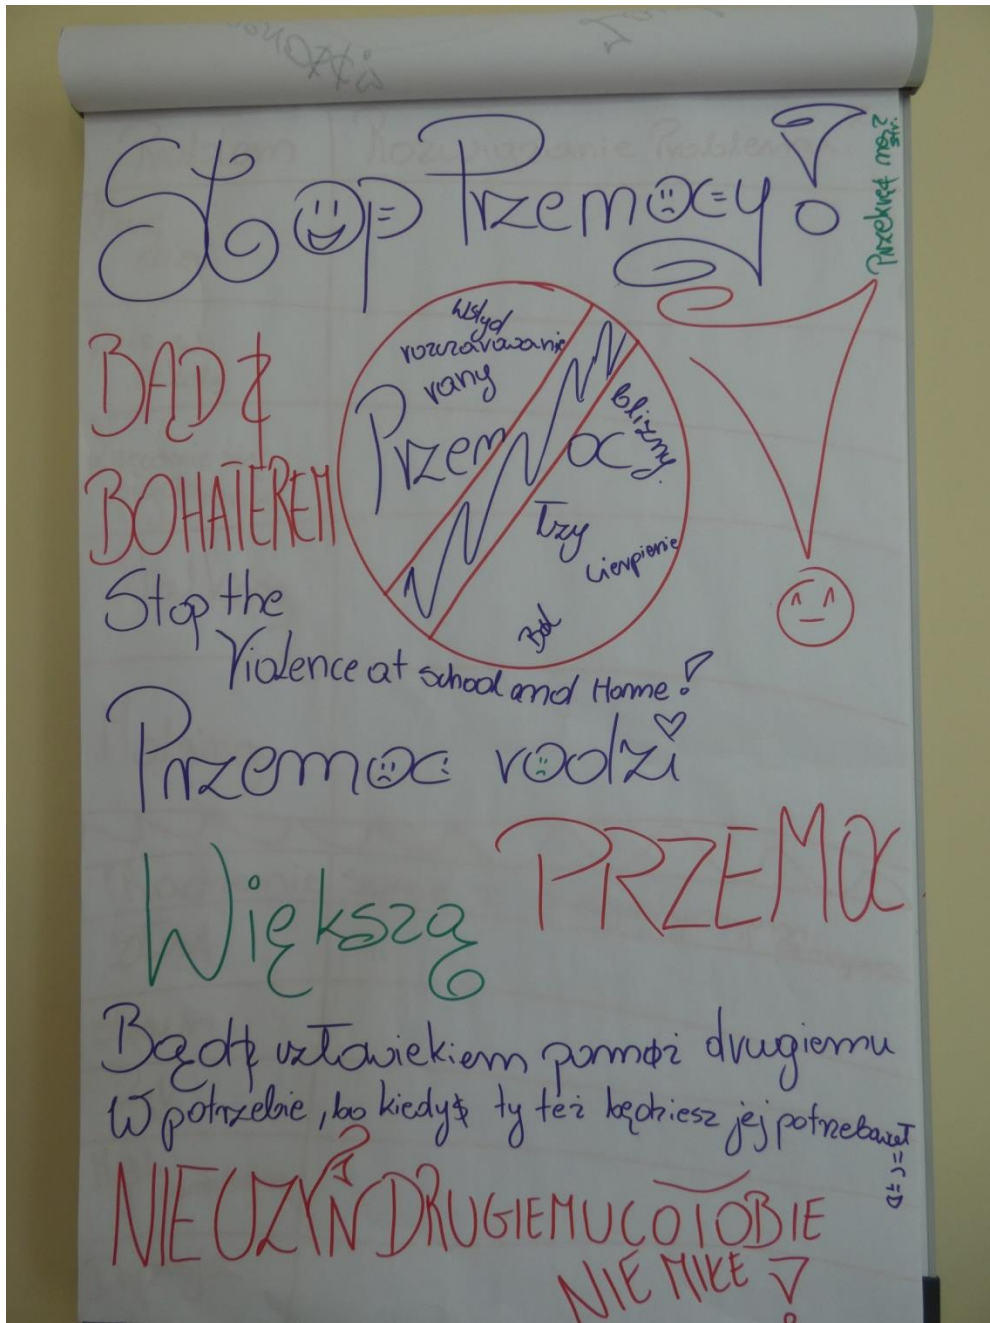 Stop Przemocy!
Przekręć na 2 str.
BĄDŹ
BOHATEREM
Wstyd
rozczarowanie
rany
Blizny.
Przemoc
Łzy
Cierpienie
Ból
Stop the
Violence at school and Home!
Przemoc rodzi
Większą PRZEMOC
Bądź człowiekiem pomóż drugiemu
W potrzebie, bo kiedyś ty też będziesz jej potrzebował
NIE CZYŃ DRUGIEMU CO TOBIE
NIE MIŁE!